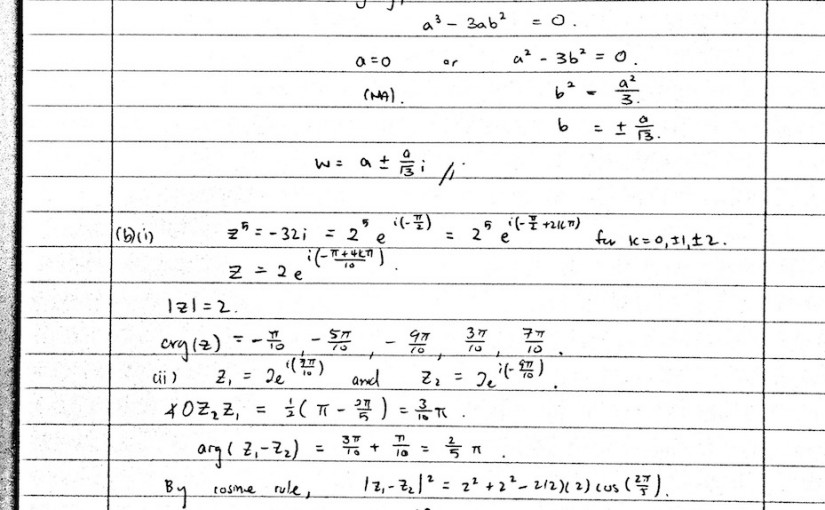 a³ - 3ab² = 0.
a=0 or a² - 3b² = 0.
(NA). b² = a²/3.
b = ± a/√3.
w = a ± a/√3 i //
(b)(i) z⁵ = -32i = 2⁵ e^{i(-π/2)} = 2⁵ e^{i(-π/2 + 2kπ)} for k=0, ±1, ±2.
z = 2e^{i(-π+4kπ)/10}.
|z| = 2.
arg(z) = -π/10, -5π/10, -9π/10, 3π/10, 7π/10.
(ii) z₁ = 2e^{i(7π/10)} and z₂ = 2e^{i(-9π/10)}.
∡OZ₂Z₁ = ½(π - 2π/5) = 3/10 π.
arg(z₁-z₂) = 3π/10 + π/10 = 2/5 π.
By cosine rule, |z₁-z₂|² = 2² + 2² - 2(2)(2) cos(2π/5).